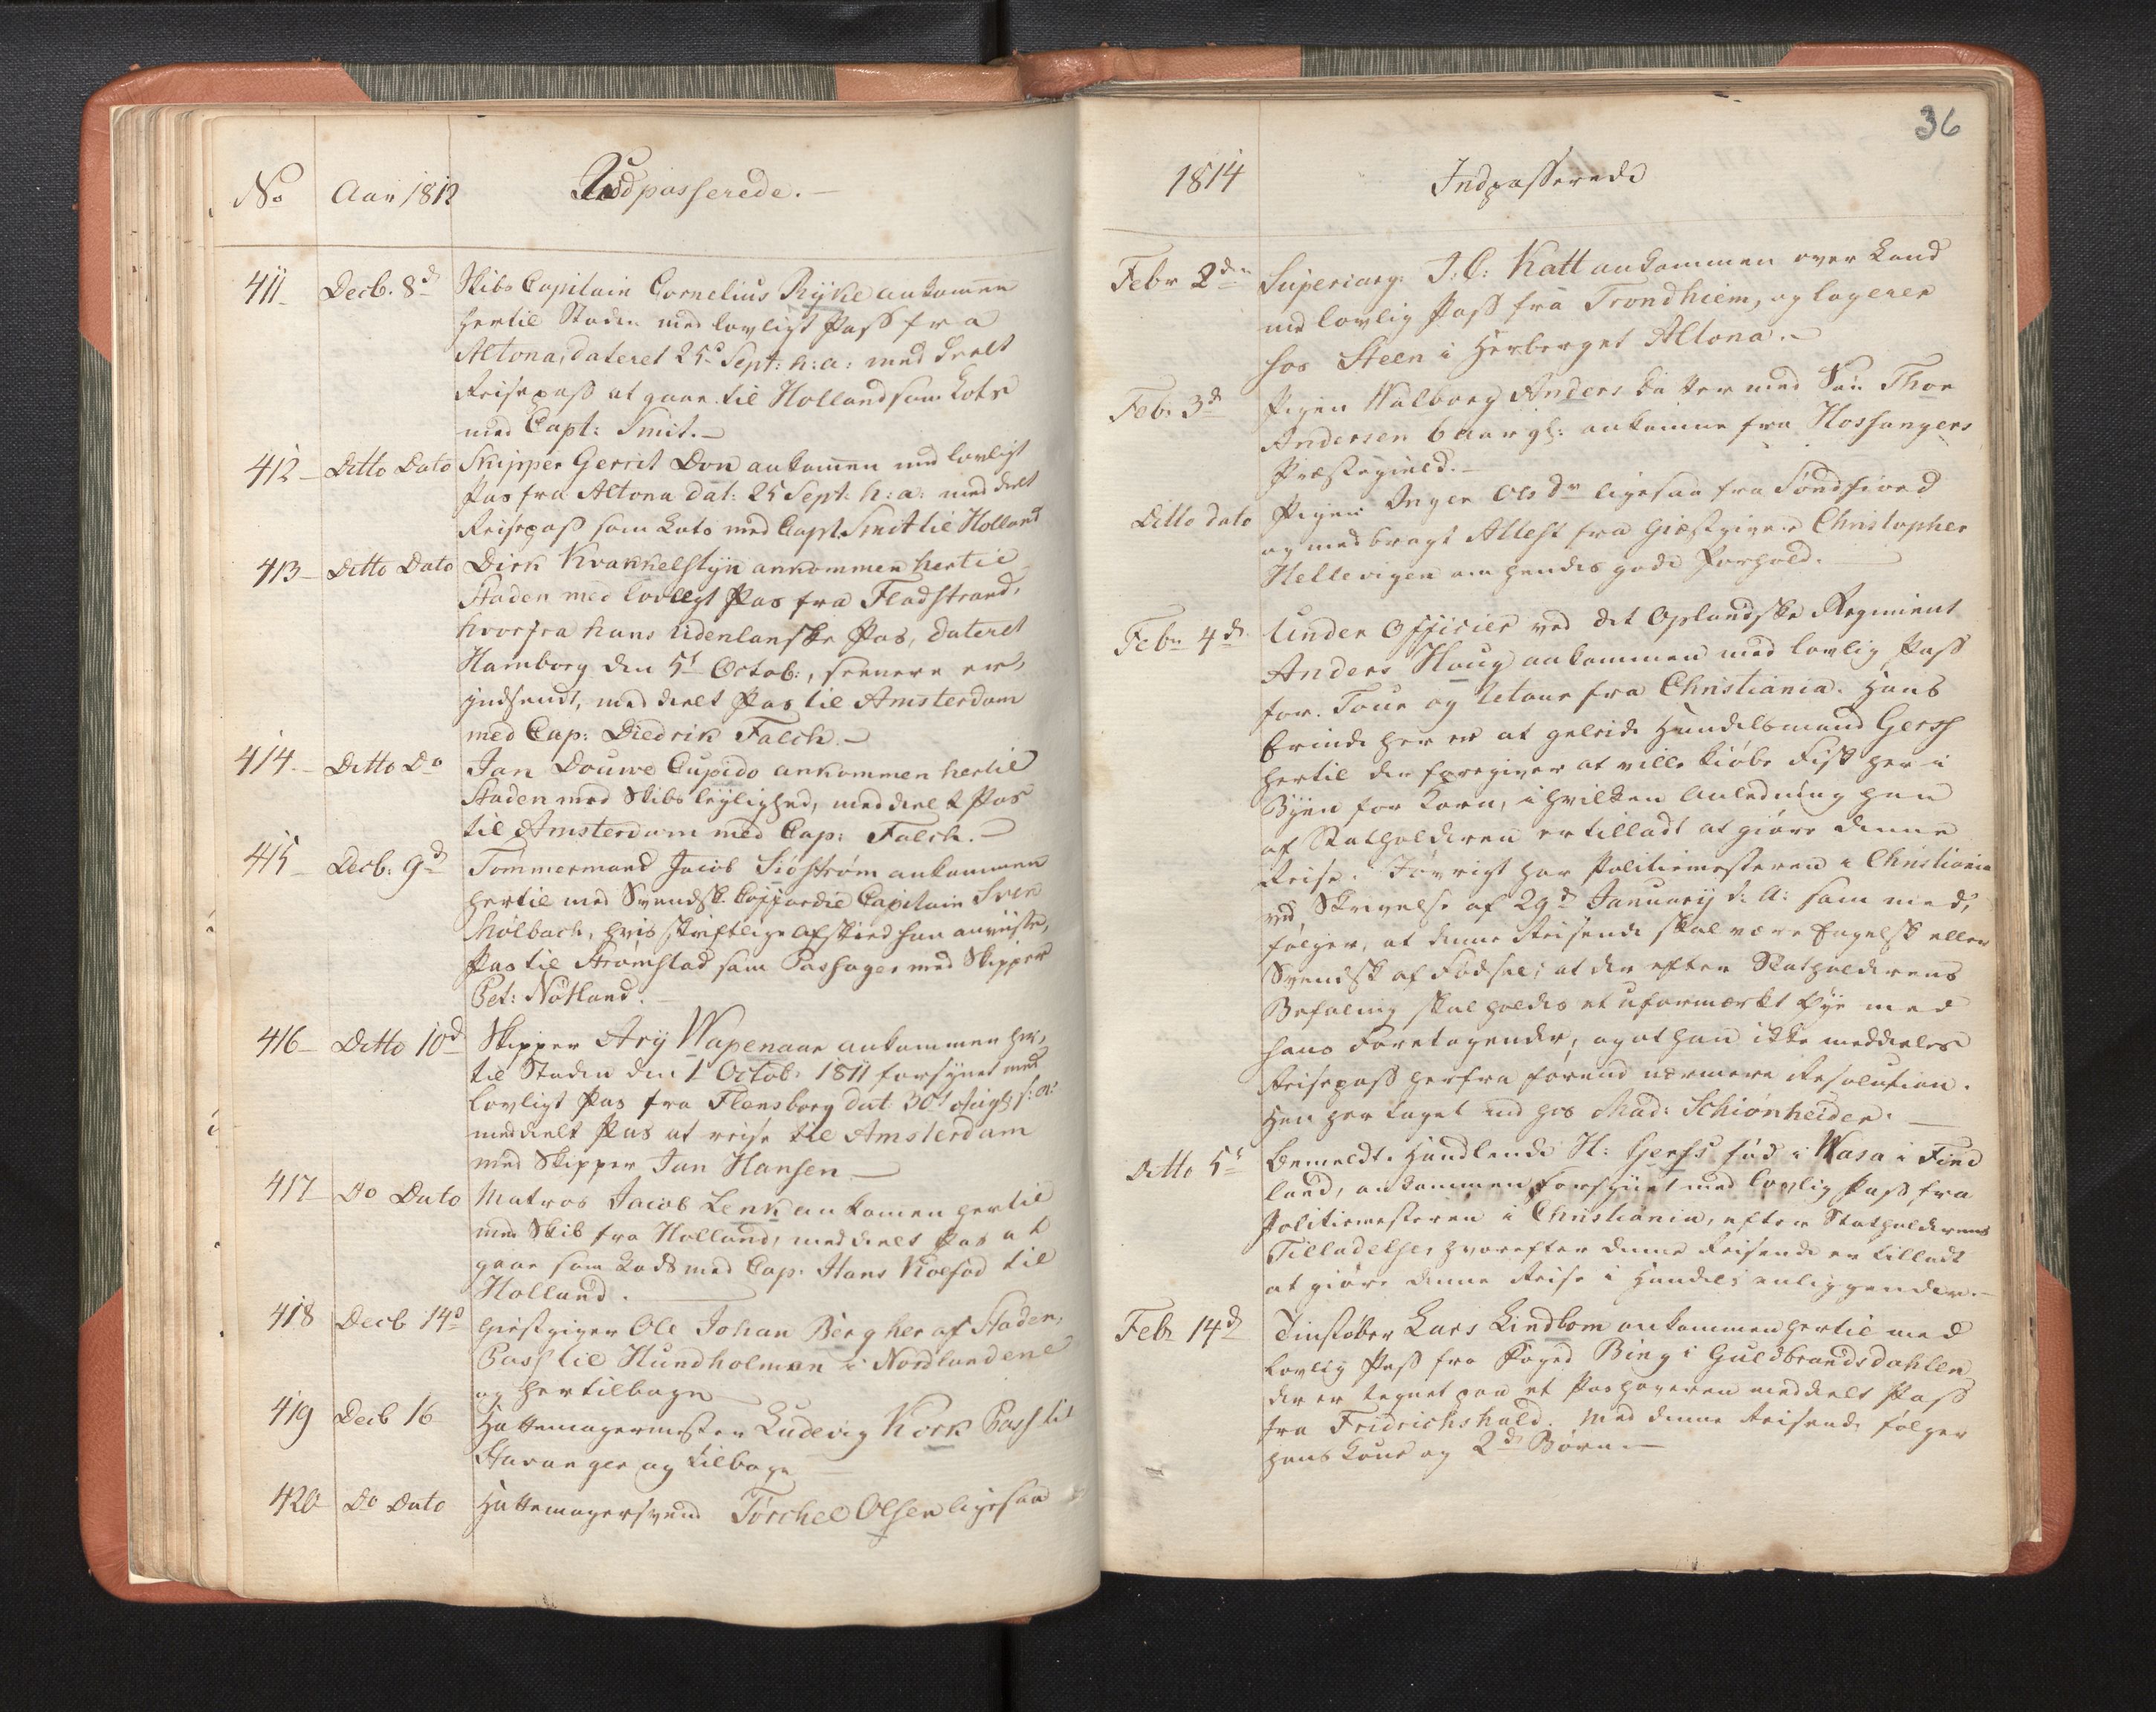 No Aar 1812 Udpasserede.
411 Decb. 8d Skibs Capitain Cornelius Rÿke ankommen
hertil Staden med lovligt Pass fra
Altona, dateret 25d Sept: h: a: meddeelt
Reisepass at gaae til Holland som Lots
med Capt: Smit.
412 Ditto Dato Skipper Gerrit Don ankommen med lovligt
Pas fra Altona dat: 25 Sept: h: a: meddeelt
Reisepass som Lots med Capt. Smit til Holland
413 Ditto Dato Dirk Kvakkelstÿn ankommen hertil
Staden med lovligt Pas fra Fladstrand,
hvorfra hans udenlanske Pas, dateret
Hamborg den 5t Octob:, senere er
indsendt, meddeelt Pas til Amsterdam
med Cap: Diedrik Falch.
414 Ditto Do Jan Douwe Cupido ankommen hertil
Staden med Skibsleylighed, meddeelt Pas
til Amsterdam med Cap: Falch.
415 Decb: 9d Tömmermand Jacob Siöström ankommen
hertil med Svendsk Coffardie Capitain Sven
Mölbach, hvis skriftlige Afskied han anviiste,
Pas til Strømstad som Passager med Skipper
Pet: Nötland.
416 Ditto 10d Skipper Arÿ Wapenaar ankommen her,
til Staden den 1 Octob: 1811 forsÿnet med
lovligt Pas fra Flensborg dat: 30t Aug: s: a:
meddeelt Pas at reise til Amsterdam
med Skipper Jan Hansen
417 Do Dato Matros Jacob Lenk ankommen hertil
med Skib fra Holland, meddeelt Pas at
gaae som Lods med Cap. Hans Kolsød til
Holland.
418 Decb 14d Giestgiver Ole Johan Berg her af Staden,
Pass til Hundholmen i Nordlandene
og hertilbage
419 Decb 16 Hattemagermester Ludevig Kork Pass til
Stavanger og tilbage
420 Do Dato Hattemagersvend Torchel Olsen ligesaa
36
1814 Indpasserede
Febr 2den Supercarg: J. C: Katt ankommen over Land
med lovlig Pass fra Trondhiem, og logerer
hos Steen i Herberget Altona.
Feb. 3d Pigen Walborg Andersdatter med Søn Thor
Andersen 6 Aar gl: ankomne fra Hossangers
Præstegield.
Ditto dato Pigen Inger Olsdr ligesaa fra Söndfiord
og medbragt Attest fra Giæstgiver Christopher
Hellevigen om hendes gode Forhold.
Febr 4de Under Officier ved det Oplandske Regiment
Anders Haug ankommen med lovlig Pass
for Tour og Retour fra Christiania. Hans
Erinde her er at geleide Handelsmand Gerss
hertil der foregiver at ville kiøbe Fisk her i
Bÿen for Korn, i hvilken Anledning han
af Statholderen er tilladt at giøre denne
Reise. Iøvrigt har Politiemesteren i Christiania
ved Skrivelse af 29d Januarÿ d: A: som med,
følger, at denne Reisende skal være Engelsk eller
Svendsk af Fødsel; at der efter Statholderens
Befaling skal holdes et uformærkt Øÿe med
hans Foretagender, og at han ikke meddeeles
Reisepass herfra førend nærmere Resolution.
Han har taget ind hos Mad: Schiønheider.
Ditto 5t Bemeldte Handlende H: Gerss fød i Wasa i Find
land, ankommen, forsÿnet med lovlig Pass fra
Politiemesteren i Christiania, efter Statholderens
Tilladelse, hvorefter denne Reisende er tilladt
at giøre denne Reise i Handels anliggender.
Febr 14d Tinstøber Lars Lindbom ankommen hertil med
lovlig Pass fra Foged Bing i Guldbrandsdahlen
der er tegnet paa et Pashaveren meddeelt Pass
fra Fridrichshald. Med denne Reisende følger
hans Kone og 2de Børn.